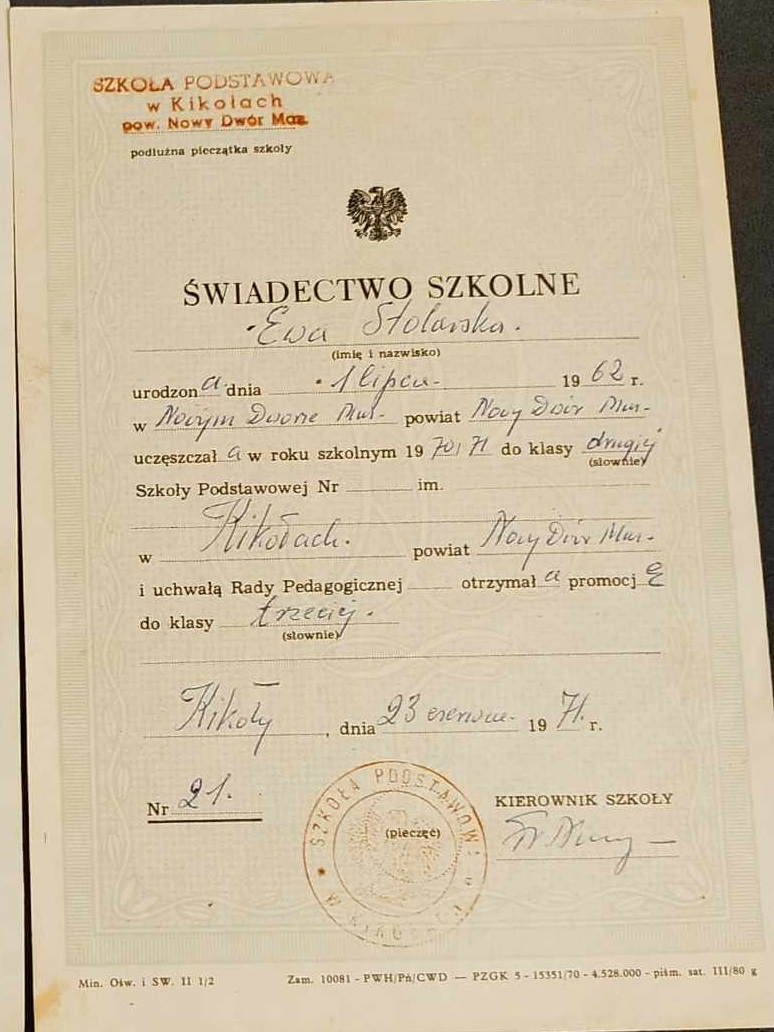 SZKOŁA PODSTAWOWA
w Kikołach
pow. Nowy Dwór Maz.
podłużna pieczątka szkoły
ŚWIADECTWO SZKOLNE
Ewa Stolarska.
(imię i nazwisko)
urodzon a dnia 1 lipca 1962 r.
w Nowym Dworze Maz. powiat Nowy Dwór Maz.
uczęszczał a w roku szkolnym 1970/71 do klasy drugiej
(słownie)
Szkoły Podstawowej Nr im.
w Kikołach. powiat Nowy Dwór Maz.
i uchwałą Rady Pedagogicznej otrzymał a promocj ę
do klasy trzeciej.
(słownie)
Kikoły, dnia 23 czerwca 1971 r.
Nr 21.
SZKOŁA PODSTAWOWA W KIKOŁACH
(pieczęć)
KIEROWNIK SZKOŁY
Min. Ośw. i SW. II 1/2 Zam. 10081 - PWH/Pń/CWD — PZGK 5 - 15351/70 - 4.528.000 - piśm. sat. III/80 g